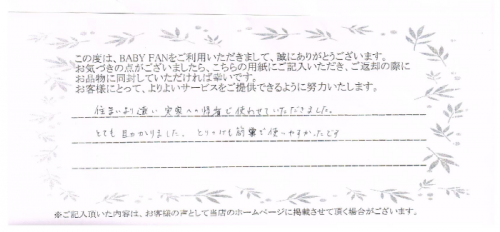 この度は、BABY FANをご利用いただきまして、誠にありがとうございます。
お気づきの点がございましたら、こちらの用紙にご記入いただき、ご返却の際に
お品物に同封していただければ幸いです。
お客様にとって、よりよいサービスをご提供できるように努力いたします。
住まいより遠い実家への帰省で使わせていただきました。
とても助かりました。とりつけも簡単で使いやすかったです
※ご記入頂いた内容は、お客様の声として当店のホームページに掲載させて頂く場合がございます。